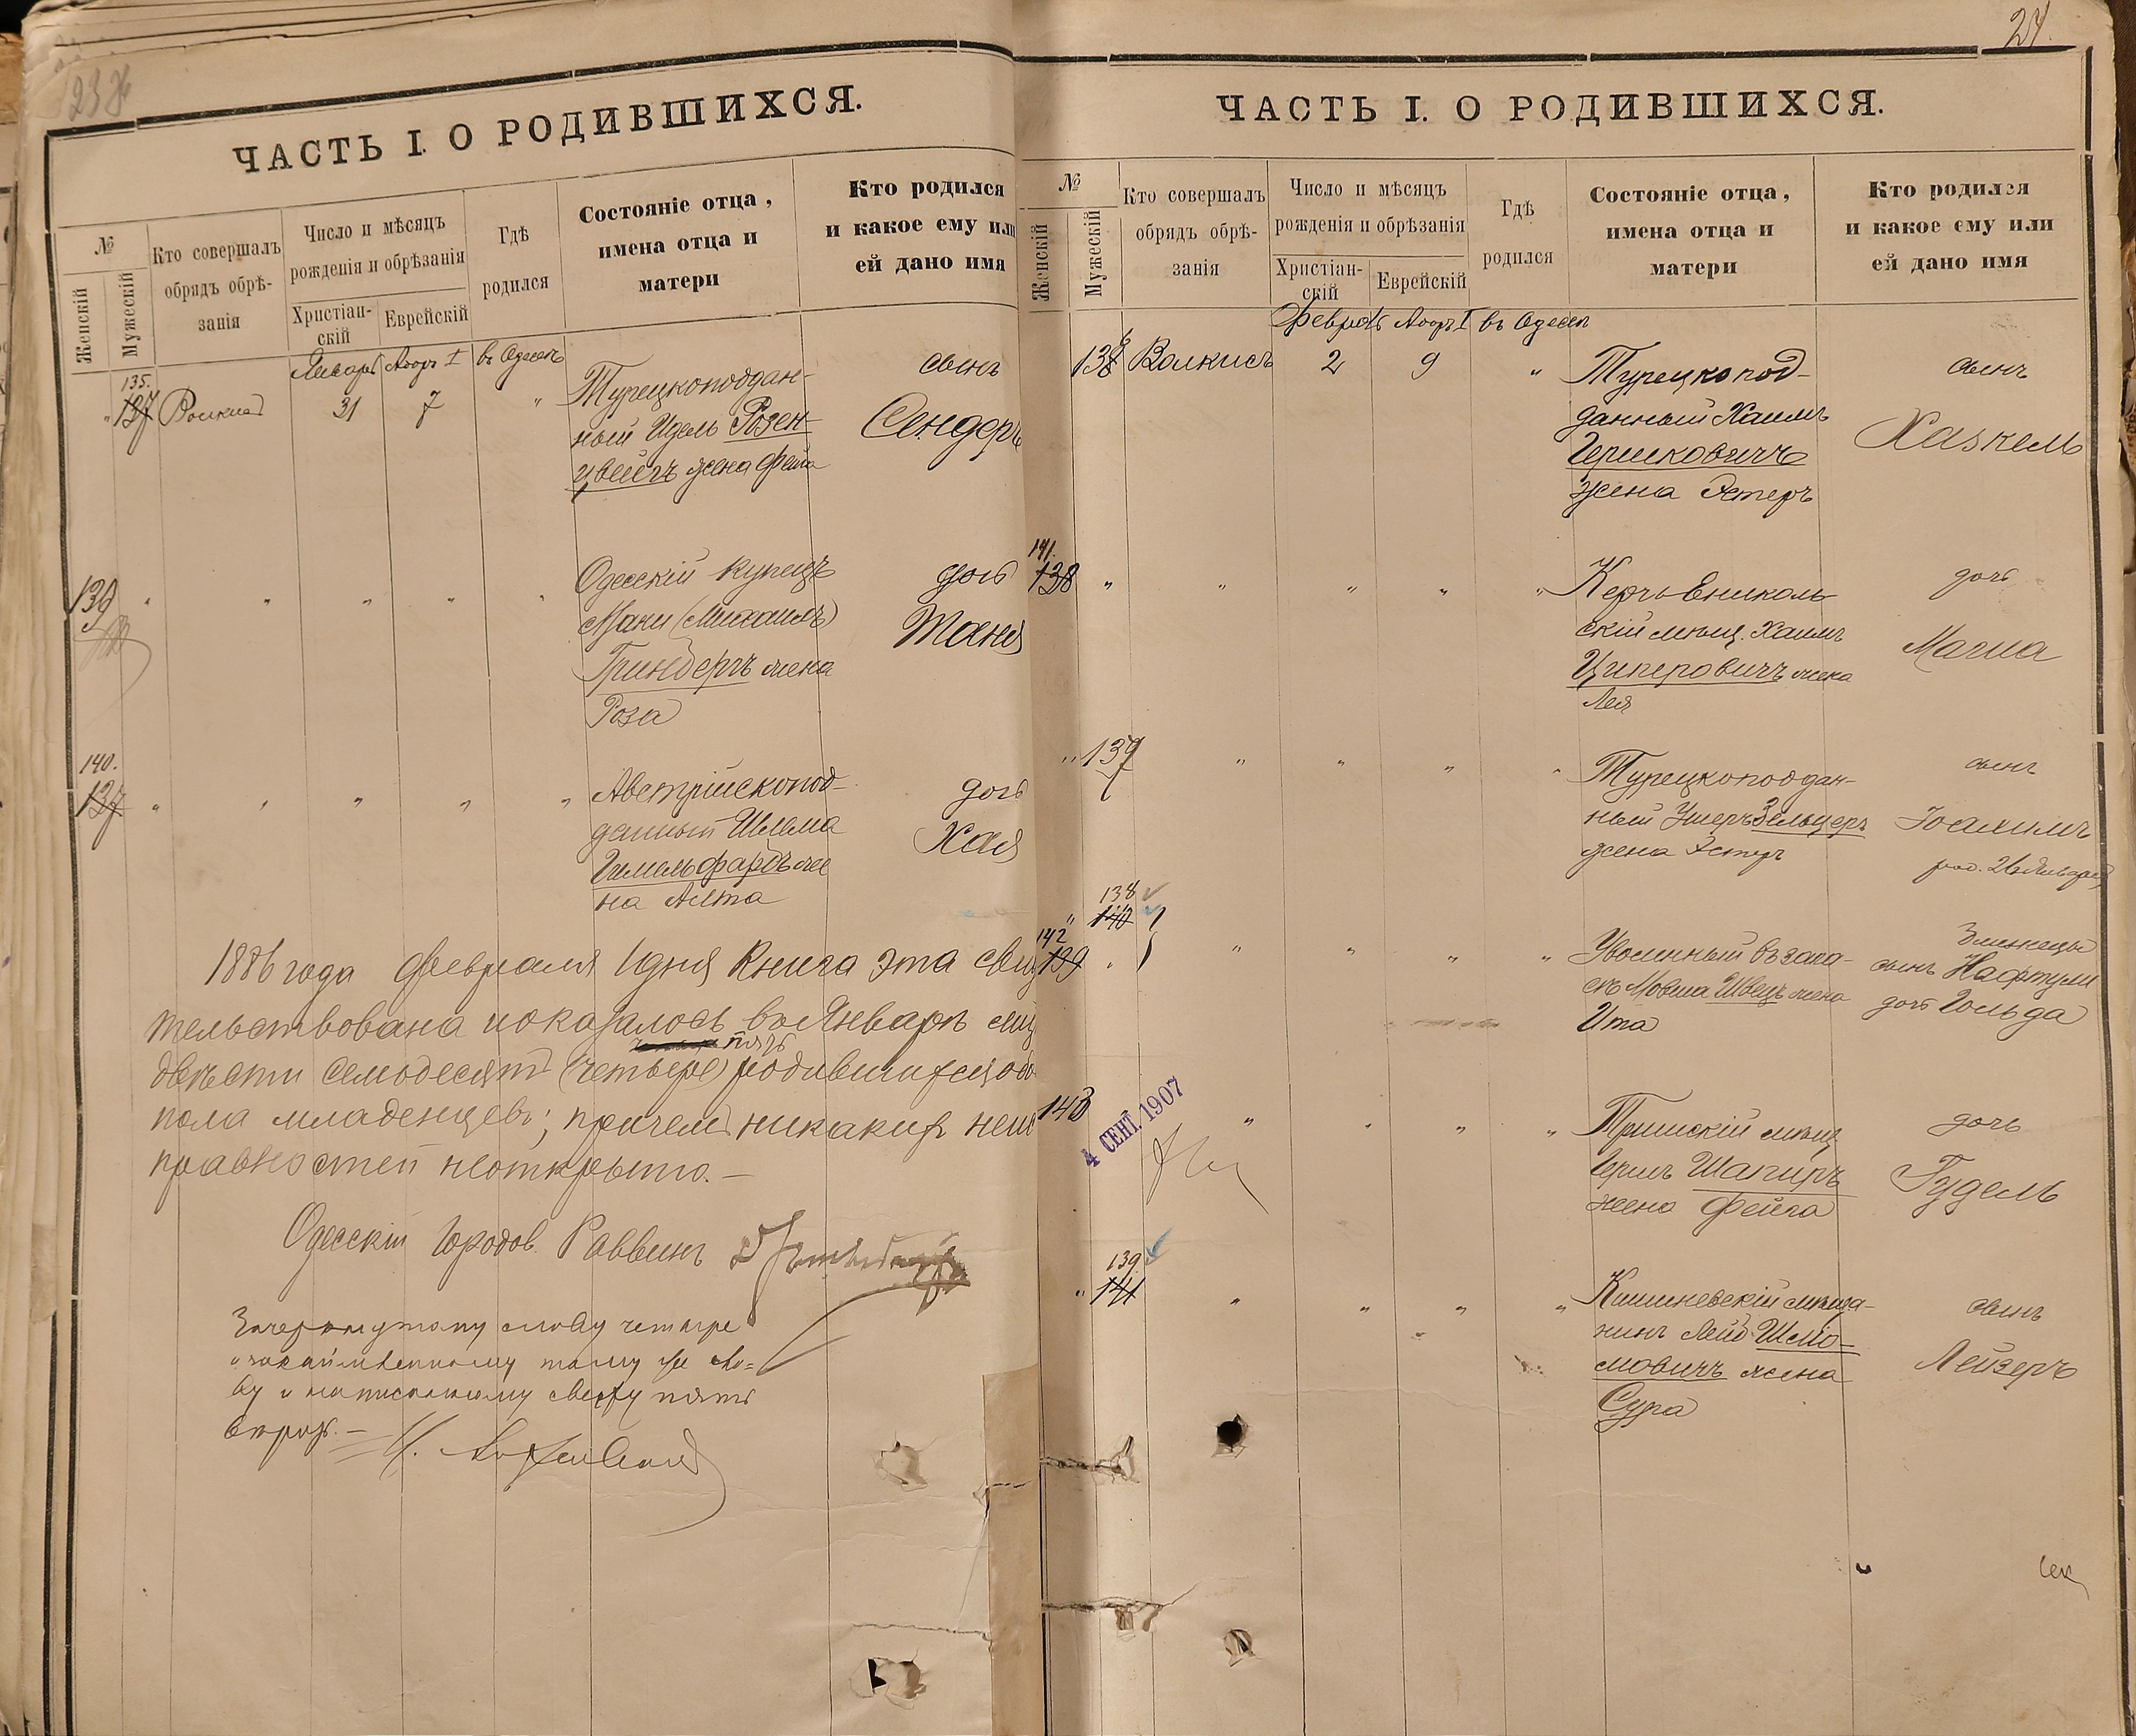 ЧАСТЬ I. О РОДИВШИХСЯ.
№
Женскій
Мужескій
Кто совершалъ
обрядъ обрѣ-
занія
Число и мѣсяцъ
рожденія и обрѣзанія
Христіан-
скій
Еврейскій
Гдѣ
родился
Состояніе отца,
имена отца и
матери
Кто родился
и какое ему или
ей дано имя
Январь Адоръ I въ Одессѣ
135.
" 137
31 7 "
Турецкоподдан-
ный Идель Розен-
цвейгъ жена Фейга
сынъ
Сендеръ
139 " " " " "
Одесскій купецъ
Мани (Михаилъ)
Гринбергъ жена
Роза
дочь
Таня
140.
137 " " " " "
Австрійскопод-
данный Шлема
Гимельфарбъ же
на Алта
дочь
Хая
1886 года февраля 1 дня Книга эта свид
тельствована и оказалось въ Январѣ мц
пять
двѣсти семьдесятъ (четыре) родившихся обо
пола младенцевъ; причемъ никакихъ неи
правностей не открыто.—
Одесскій Городов. Раввинъ
Зачеркнутому слову четыре
и окаймленному тому же сло=
ву и написанному сверху пять
вѣрить.—
24.
ЧАСТЬ I. О РОДИВШИХСЯ.
№
Женскій
Мужескій
Кто совершалъ
обрядъ обрѣ-
занія
Число и мѣсяцъ
рожденія и обрѣзанія
Христіан-
скій
Еврейскій
Гдѣ
родился
Состояніе отца,
имена отца и
матери
Кто родился
и какое ему или
ей дано имя
Февраль Адоръ I въ Одессѣ
2 9 "
Турецкопод-
данный Хаимъ
Гершковичъ
жена Эстеръ
сынъ
Хаскель
141.
138 " " " " "
Керчь-Ениколь-
скій мѣщ. Хаимъ
Циперовичъ жена
Лея
дочь
Магиа
" 137 " " " "
Турецкоподдан-
ный Ушеръ Зельцеръ
жена Эстеръ
сынъ
Іоахимъ
род. 26 Января
138
" 140
142
139 " " " "
Уволенный въ запа-
съ Мовша Швецъ жена
Ита
Близнецы
сынъ Нафтули
дочь Гольда
143 " " " "
4 СЕНТ. 1907
мѣщ
Герш Шапиръ
жена Фейга
дочь
Гудель
139.
" 141 " " " "
Кишиневскій мѣща-
нинъ Лейб Шлio-
мовичъ жена
Сура
сынъ
Лейзеръ